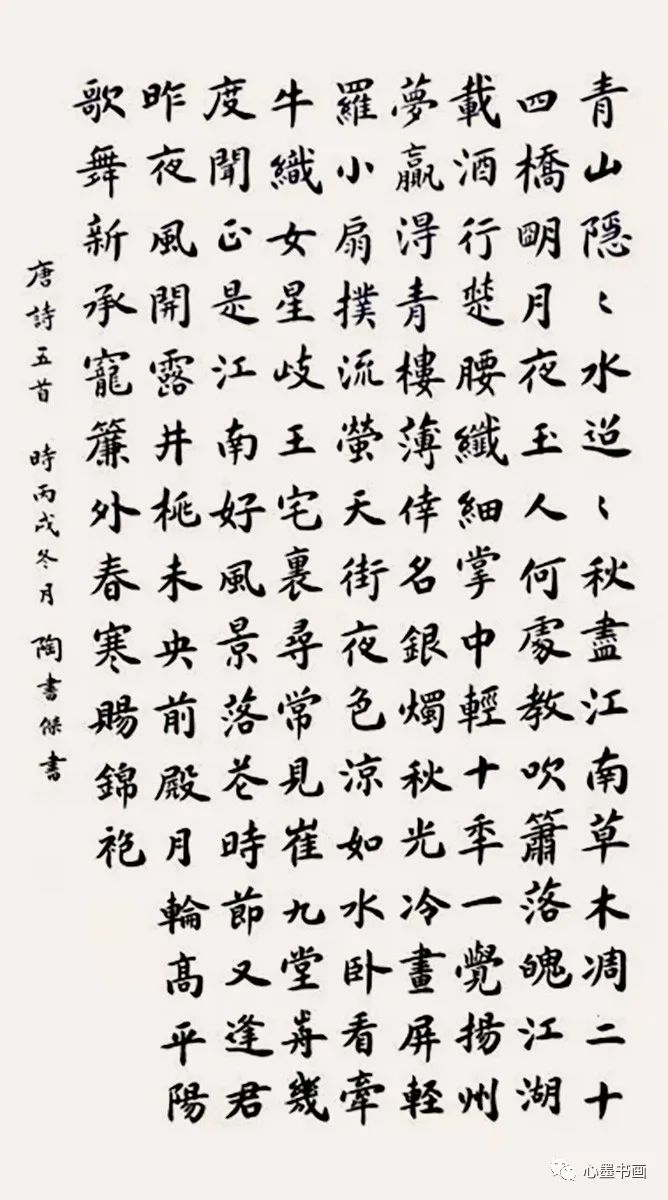 青山隱〻水迢〻秋盡江南草木凋二十
四橋朙月夜玉人何處教吹簫落魄江湖
載酒行楚腰纖細掌中輕十秊一覺揚州
夢贏淂青樓薄倖名銀燭秋光冷畫屏軽
羅小扇撲流螢天街夜色涼如水卧看牽
牛織女星歧王宅裏尋常見崔九堂歬幾
度聞正是江南好風景落花時節又逢君
昨夜風開露井桃未央前殿月輪高平陽
歌舞新承寵簾外春寒賜錦袍
唐詩五首 時丙戌冬月 陶書傑書
心墨书画